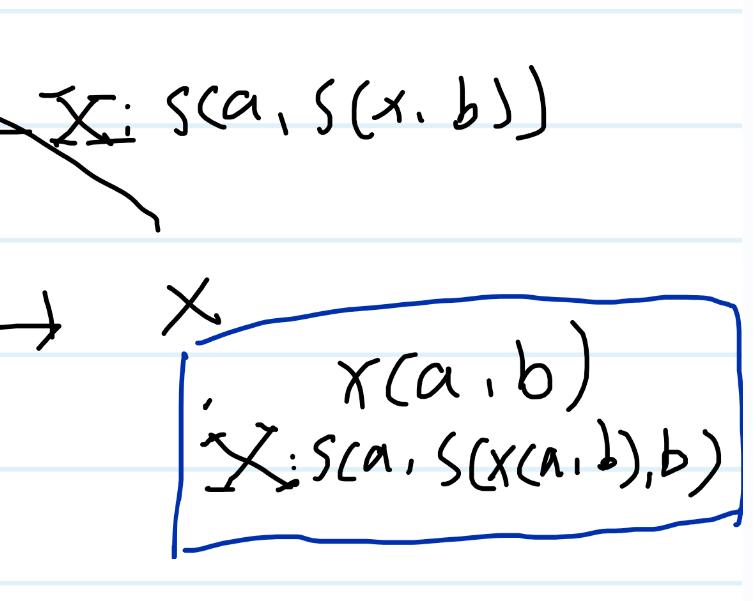 X: s(a, s(x, b))
→ x
x(a, b)
X: s(a, s(x(a, b), b)